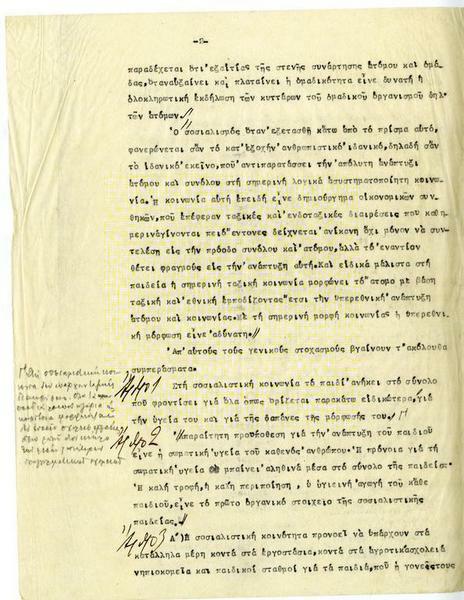 -2-
παραδέχεται ὅτι ἐξαιτίας τῆς στενῆς συνάρτησης ἀτόμου και ὁμά-
δας, ὅταν αὐξαίνει καί πλαταίνει ἡ ὁμαδικότητα εἶνε δυνατή ἡ
ὁλοκληρωτική ἐκδήλωση τῶν κυττάρων τοῦ ὁμαδικοῦ ὀργανισμοῦ δηλ
τῶν ἀτόμων.
Ὁ σοσιαλισμός ὅταν ἐξετασθῆ κάτω ἀπό τό πρίσμα αὐτό,
φανερώνεται σάν τό κατ' ἐξοχήν ἀνθρωπιστικό ἰδανικό, δηλαδή σάν
τό ἰδανικό ἐκεῖνο, πού ἀντιπαρατάσσει τήν ἀπόλυτη ἀνάπτυξι
ἀτόμου καί συνόλου στή σημερινή λογικά ἀσυστηματοποίητη κοινω-
νία. Ἡ κοινωνία αὐτή ἐπειδή εἶνε δημιούργημα οἰκονομικῶν συν-
θηκῶν, πού ἐπέφεραν ταξικές καί ἐνδοταξικές διαιρέσεις πού καθη-
μερινά γίνονται πειό ἔντονες δείχνεται ἀνίκανη ὄχι μόνον νά συν-
τελέση εἰς τήν πρόοδο συνόλου καί ἀτόμου, ἀλλά τό ἐναντίον
θέτει φραγμούς εἰς τήν ἀνάπτυξη αὐτή. Καί εἰδικά μάλιστα στή
παιδεία ἡ σημερινή ταξική κοινωνία μορφώνει τό ἄτομο μέ βάση
ταξική καί ἐθνική ἐμποδίζοντας ἔτσι τήν ὑπερεθνική ἀνάπτυξη
ἀτόμου καί κοινωνίας. Μέ τή σημερινή μορφή κοινωνίας ἡ ὑπερεθνι-
κή μόρφωση εἶνε ἀδύνατη.
Ἀπ' αὐτούς τούς γενικούς στοχασμούς βγαίνουν τ' ἀκόλουθα
συμπεράσματα.
Ἄρθρο 1 Στή σοσιαλιστική κοινωνία τό παιδί ἀνήκει στό σύνολο
πού φροντίσει γιά ὅλα ὅπως ὁρίζεται παρακάτω εἰδικώτερα, γιά
τήν ὑγεία του καί γιά τῆς δαπάνες τῆς μόρφωσής του.
Ἄρθρο 2 Ἀπαραίτητη προϋπόθεση γιά τήν ἀνάπτυξη τοῦ παιδιοῦ
εἶνε ἡ σωματική ὑγεία τοῦ καθενός ἀνθρώπου. Ἡ πρόνοια γιά τή
σωματική ὑγεία μπαίνει ἀληθινά μέσα στό σύνολο τῆς παιδείας.
Ἡ καλή τροφή, ἡ καλή περιποίηση, ἡ ὑγιεινή ἀγωγή τοῦ κάθε
παιδιοῦ, εἶνε τό πρῶτο ὀργανικό στοιχεῖο τῆς σοσιαλιστικῆς
παιδείας.
Ἄρθρο 3 Α') Ἡ σοσιαλιστική κοινότητα προνοεῖ νά ὑπάρχουν στά
κατάλληλα μέρη κοντά στά ἐργοστάσια, κοντά στά ἀγροτικά σχολειά
νηπιοκομεῖα καί παιδικοί σταθμοί γιά τά παιδιά, πού ἡ γονεῖς τους